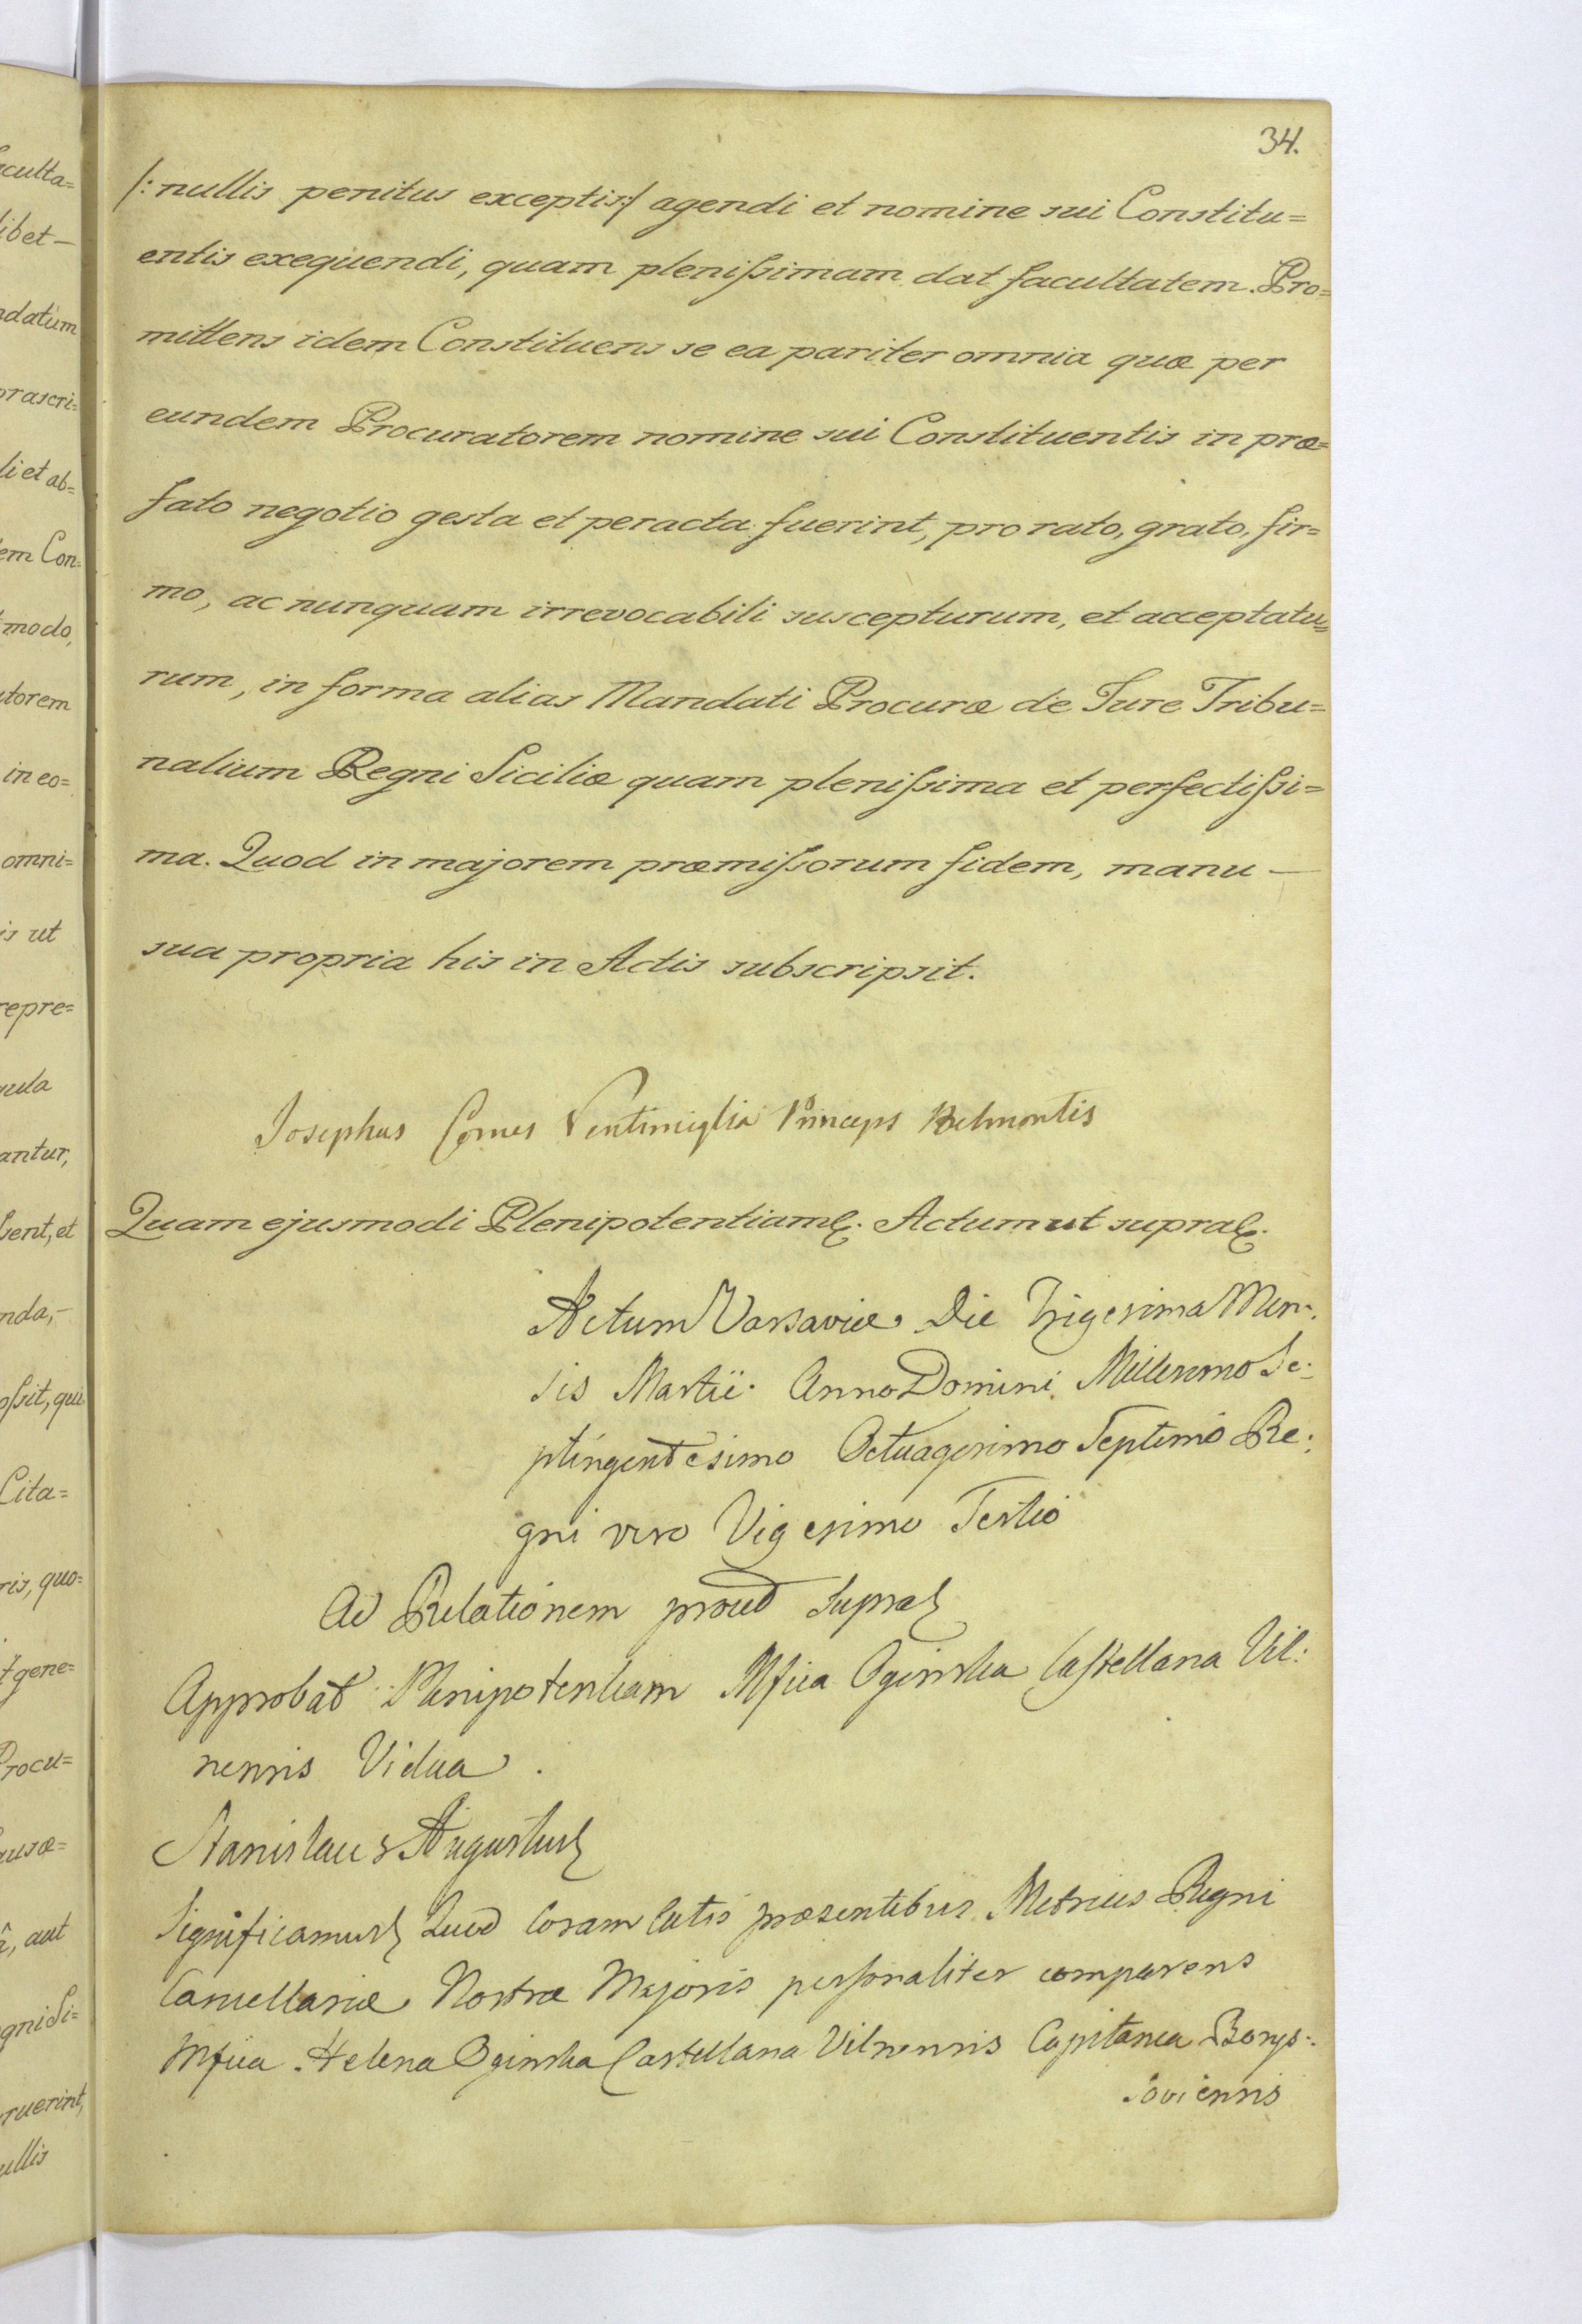 34.
/: nullis penitus exceptis :/ agendi et nomine sui Constitu=
entis exequendi, quam plenißimam dat facultatem. Pro=
mittens idem Constituens se ea pariter omnia quæ per
eundem Procuratorem nomine sui Constituentis in præ=
fato negotio gesta et peracta fuerint, pro rato, grato, fir=
mo, ac nunquam irrevocabili suscepturum, et acceptatu=
rum, in forma alias Mandati Procuræ de Jure Tribu=
nalium Regni Siciliæ quam plenißima et perfectißi=
ma. Quod in majorem præmißorum fidem, manu —
sua propria his in Actis subscripsit.
Josephus Comes Ventimiglia Princeps Belmontis
Quam ejusmodi Plenipotentiam &. Actum ut supra &.
Actum Varsaviæ Die Trigesima Men:
sis Martii Anno Domini Millesimo Se:
ptingentesimo Octuagesimo Septimo Re:
gni vero Vigesimo Tertio
Ad Relationem prout supra &
Approbat Plenipotentiam Mfica Oginska Castellana Vil:
nensis Vidua.
Stanislaus Augustus &
Significamus & Quod Coram Actis præsentibus Metrices Regni
Cancellariæ Nostræ Majoris personaliter comparens
Mfica Helena Oginska Castellana Vilnensis Capitanea Borys:
soviensis
aculta=
libet —
ndatum
præscri=
li et ab=
em Con=
modo,
utorem
in eo=
omni=
is ut
repre=
antur,
sent, et
nda, —
oßit, qui
Cita=
ris, quo=
t gene=
Procu=
ausæ=
â, aut
gni Si=
ruerint,
ullis